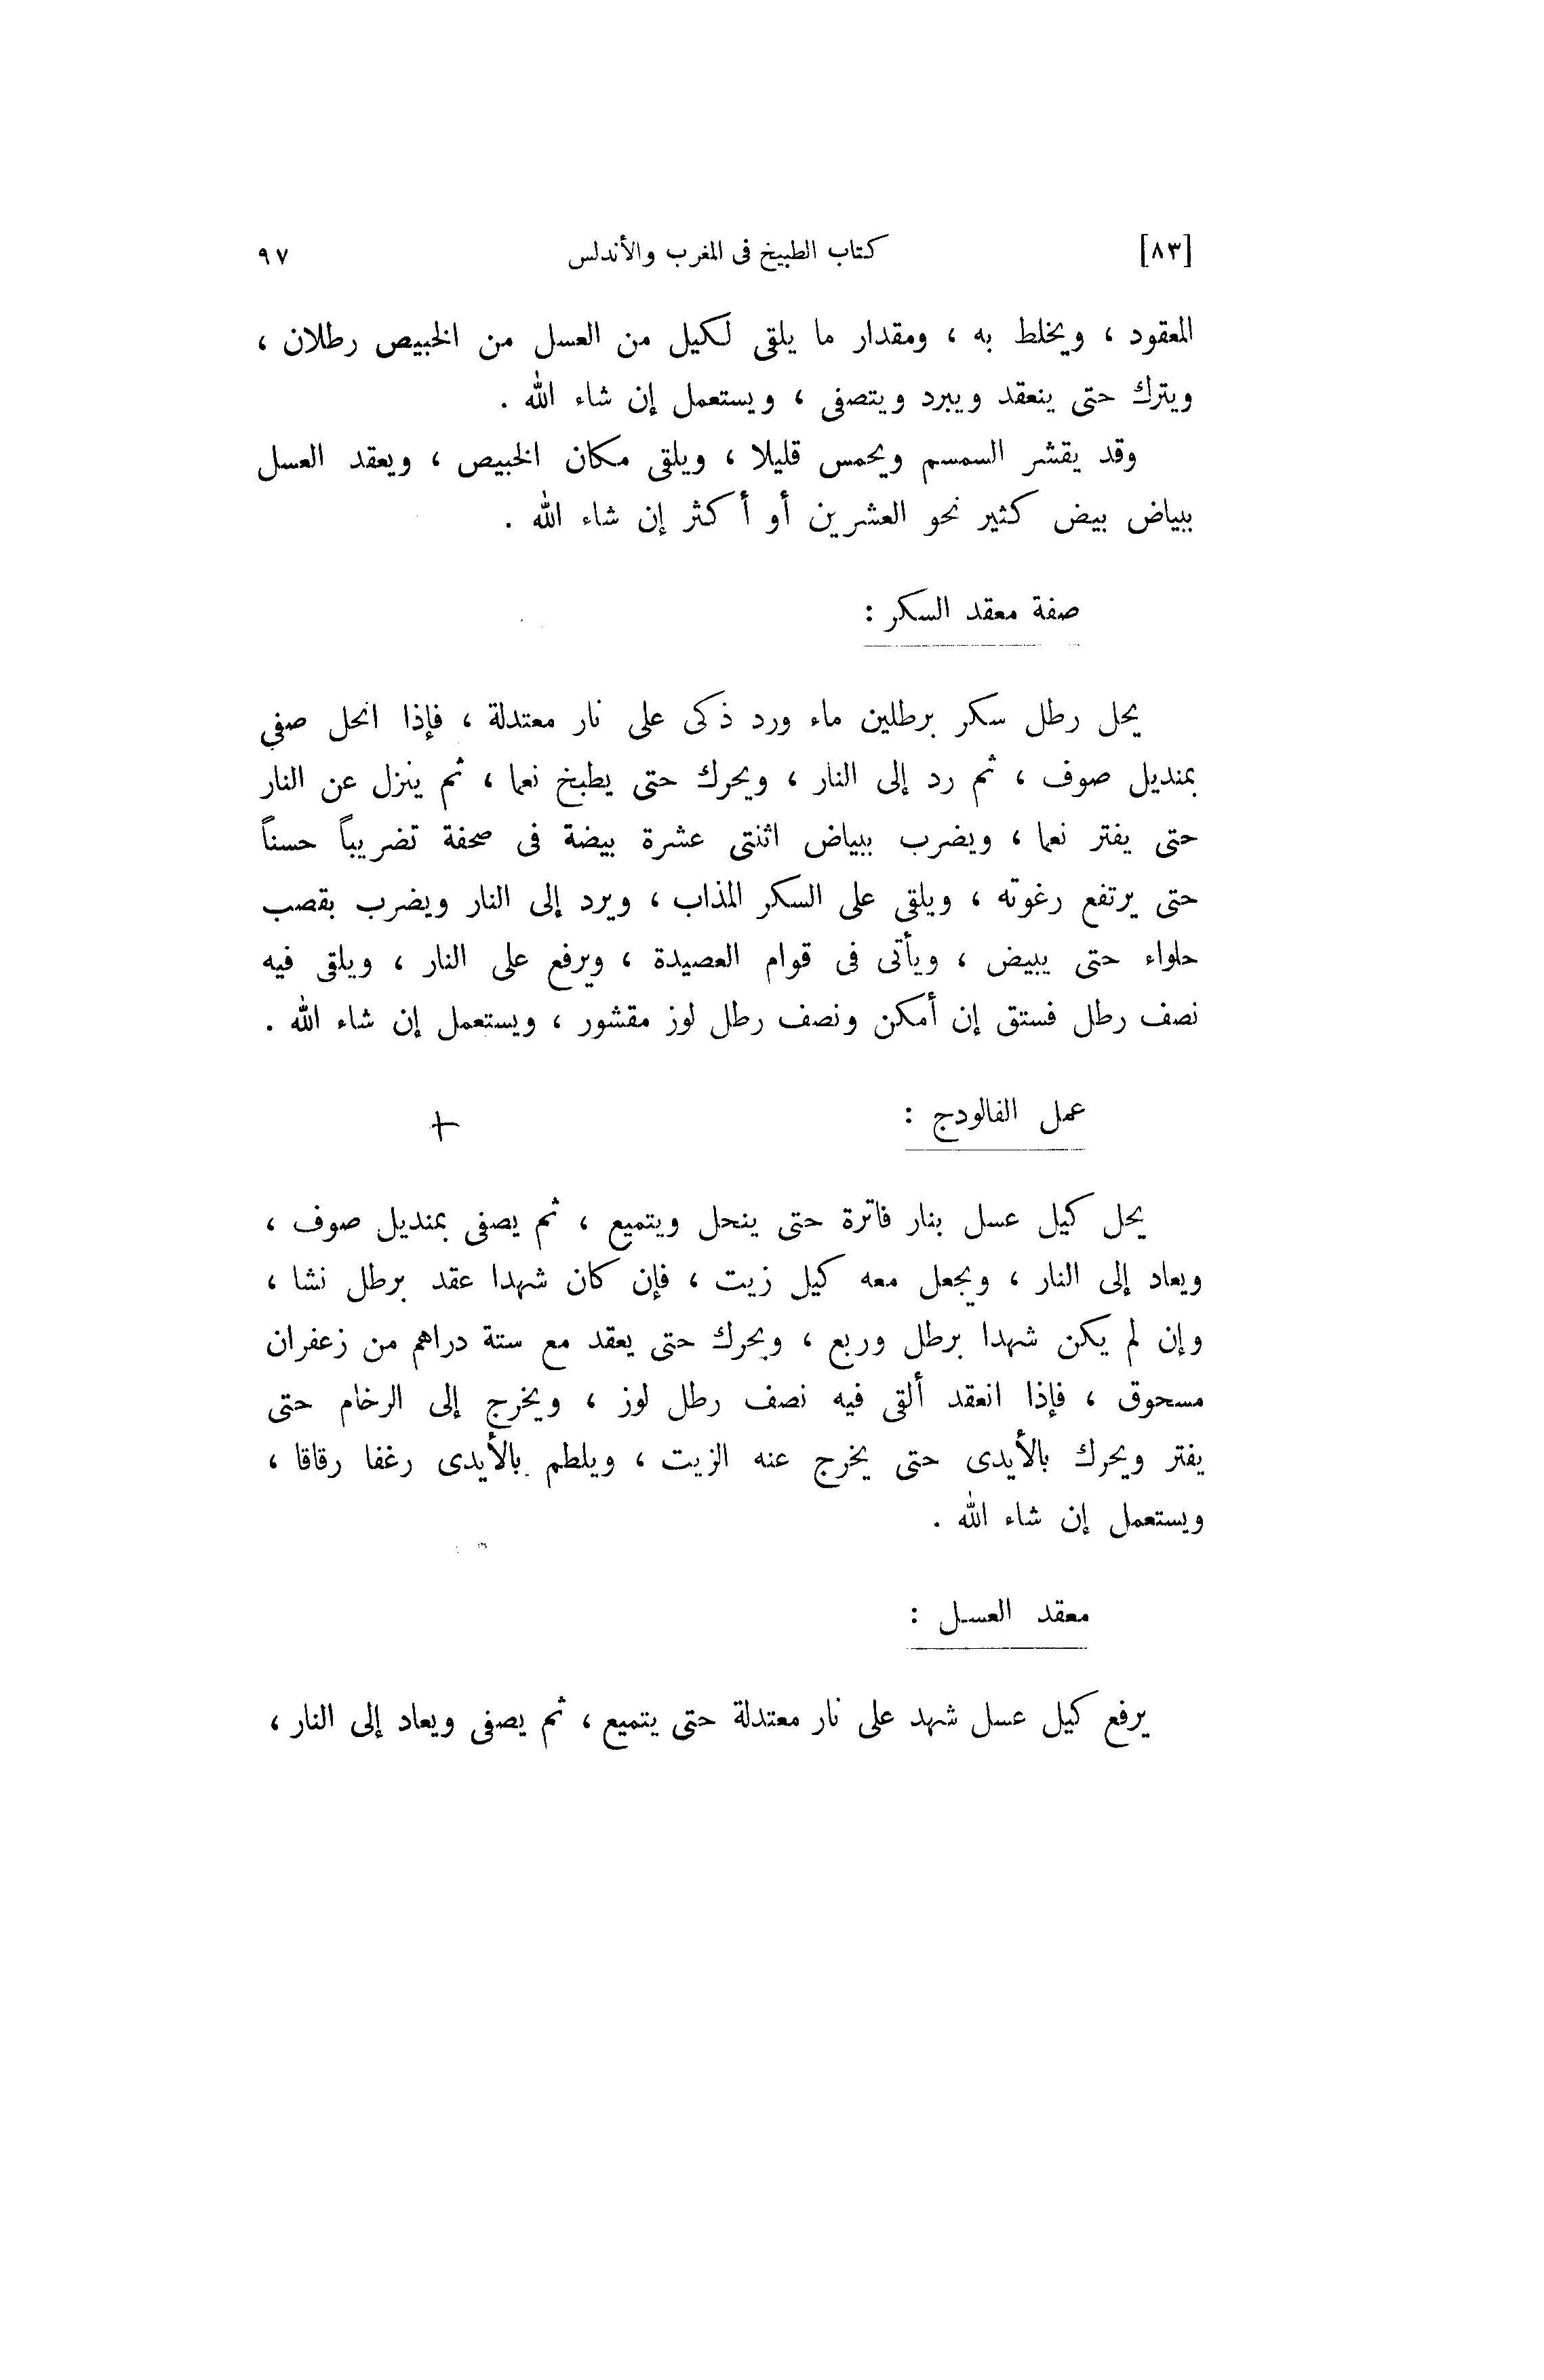 [٨٣] كتاب الطبيخ فى المغرب والأندلس ٩٧
المعقود ، ويخلط به ، ومقدار ما يلقى لكيل من العسل من الخبيص رطلان ،
ويترك حتى ينعقد ويبرد ويتصفى ، ويستعمل إن شاء الله .
وقد يقشر السمسم ويحمس قليلا ، ويلقى مكان الخبيص ، ويعقد العسل
ببياض بيض كثير نحو العشرين أو أكثر إن شاء الله .
صفة معقد السكر :
يحل رطل سكر برطلين ماء ورد ذكى على نار معتدلة ، فإذا انحل صفي
بمنديل صوف ، ثم رد إلى النار ، ويحرك حتى يطبخ نعما ، ثم ينزل عن النار
حتى يفتر نعما ، ويضرب ببياض اثنتى عشرة بيضة فى صحفة تضريباً حسناً
حتى يرتفع رغوته ، ويلقى على السكر المذاب ، ويرد إلى النار ويضرب بقصب
حلواء حتى يبيض ، ويأتى فى قوام العصيدة ، ويرفع على النار ، ويلقى فيه
نصف رطل فستق إن أمكن ونصف رطل لوز مقشور ، ويستعمل إن شاء الله .
عمل الفالودج :
يحل كيل عسل بنار فاترة حتى ينحل ويتميع ، ثم يصفى بمنديل صوف ،
ويعاد إلى النار ، ويجعل معه كيل زيت ، فإن كان شهدا عقد برطل نشا ،
وإن لم يكن شهدا برطل وربع ، ويحرك حتى يعقد مع ستة دراهم من زعفران
مسحوق ، فإذا انعقد ألقى فيه نصف رطل لوز ، ويخرج إلى الرخام حتى
يفتر ويحرك بالأيدى حتى يخرج عنه الزيت ، ويلطم بالأيدى رغفا رقاقا ،
ويستعمل إن شاء الله .
معقد العسل :
يرفع كيل عسل شهد على نار معتدلة حتى يتميع ، ثم يصفى ويعاد إلى النار ،